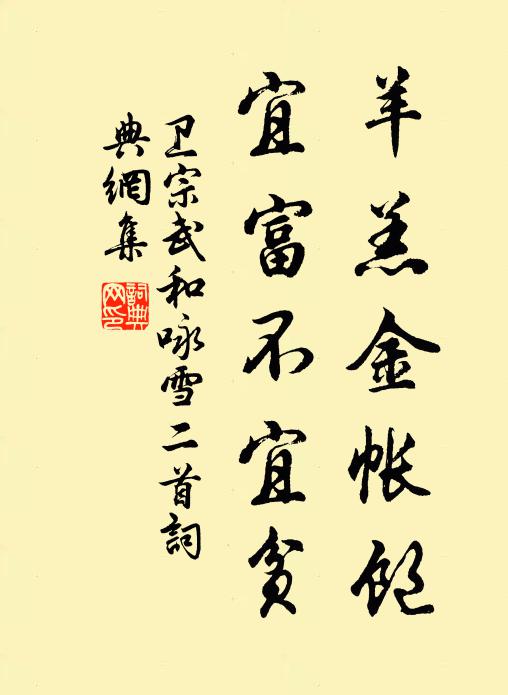 羊羔金帐饱
宜富不宜贫
卫宗武和咏雪二首詞
典網集
詞典网印